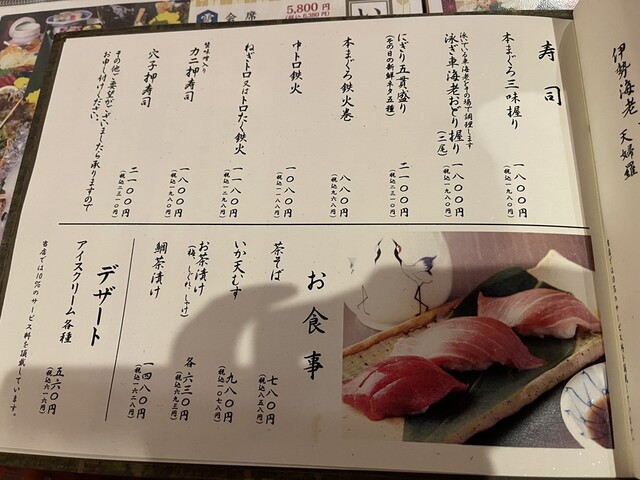 寿司
本まぐろ三味握り
一八〇〇円
(税込一九八〇円)
泳いでいる車海老をその場で調理します
泳ぎ車海老おどり握り(二尾)
一八〇〇円
(税込一九八〇円)
にぎり五貫盛り
(その日の新鮮ネタ五種)
二一〇〇円
(税込二三一〇円)
本まぐろ鉄火巻
八八〇円
(税込九六八円)
中トロ鉄火
一〇八〇円
(税込一一八八円)
ねぎトロ又はトロたく鉄火
一〇八〇円
(税込一一八八円)
蟹味噌入り
カニ押寿司
一八〇〇円
(税込一九八〇円)
穴子押寿司
二一〇〇円
(税込二三一〇円)
その他ご要望がございましたら承りますので
お申し付けください。
お食事
茶そば
七八〇円
(税込八五八円)
いか天むす
九八〇円
(税込一〇七八円)
お茶漬け
(梅、しぐれ、しゃけ)
各 六三〇円
(税込六九三円)
鯛茶漬け
一四八〇円
(税込一六二八円)
デザート
アイスクリーム各種
五六〇円
(税込六一六円)
当店では10%のサービス料を頂戴しています。
伊勢海老 天婦羅
会席
5,800円
(税込 6,380円)